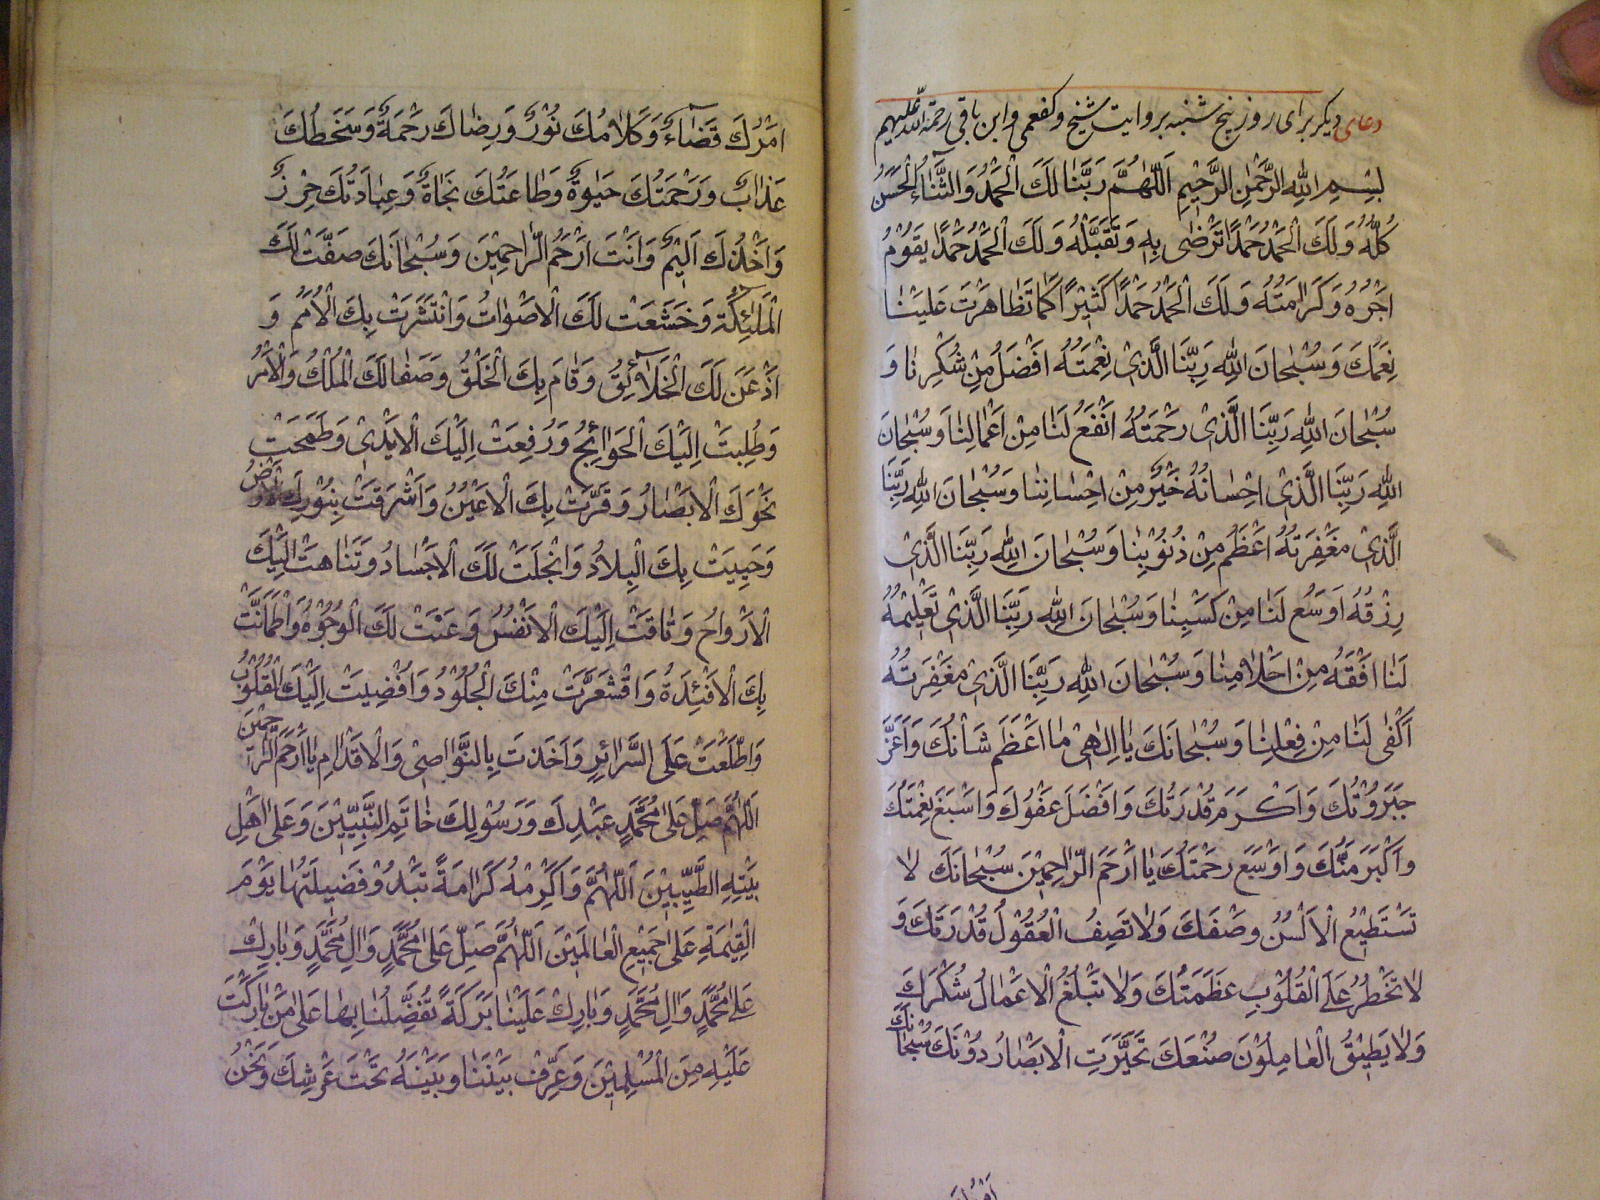 دعای دیگر برای روز پنج شنبه بروایت شیخ و کفعمی و ابن باقی رحمة الله علیهم
بِسْمِ اللهِ الرَّحْمٰنِ الرَّحِیْمِ اَللّٰهُمَّ رَبَّنَا لَكَ الْحَمْدُ وَالثَّنَاءُ الْحَسَنُ
كُلُّهُ وَلَكَ الْحَمْدُ حَمْدًا تَرْضٰى بِهِ وَتَقْبَلُهُ وَلَكَ الْحَمْدُ حَمْدًا یَقُوْمُ
اَجْرُهُ وَكَرَامَتُهُ وَلَكَ الْحَمْدُ حَمْدًا كَثِیْرًا كَمَا تَظَاهَرَتْ عَلَیْنَا
نِعَمُكَ وَسُبْحَانَ اللهِ رَبِّنَا الَّذِیْ نِعْمَتُهُ اَفْضَلُ مِنْ شُكْرِنَا وَ
سُبْحَانَ اللهِ رَبِّنَا الَّذِیْ رَحْمَتُهُ اَنْفَعُ لَنَا مِنْ اَعْمَالِنَا وَسُبْحَانَ
اللهِ رَبِّنَا الَّذِیْ اِحْسَانُهُ خَیْرٌ مِنْ اِحْسَانِنَا وَسُبْحَانَ اللهِ رَبِّنَا
الَّذِیْ مَغْفِرَتُهُ اَعْظَمُ مِنْ ذُنُوْبِنَا وَسُبْحَانَ اللهِ رَبِّنَا الَّذِیْ
رِزْقُهُ اَوْسَعُ لَنَا مِنْ كَسْبِنَا وَسُبْحَانَ اللهِ رَبِّنَا الَّذِیْ تَعْلِیْمُهُ
لَنَا اَفْقَهُ مِنْ اَحْلَامِنَا وَسُبْحَانَ اللهِ رَبِّنَا الَّذِیْ مَغْفِرَتُهُ
اَكْفٰى لَنَا مِنْ فِعْلِنَا وَسُبْحَانَكَ یَا اِلٰهِیْ مَا اَعْظَمَ شَاْنَكَ وَاَعَزَّ
جَبَرُوْتَكَ وَاَكْرَمَ قُدْرَتَكَ وَاَفْضَلَ عَفْوَكَ وَاَسْبَغَ نِعْمَتَكَ
وَاَكْبَرَ مَنَّكَ وَاَوْسَعَ رَحْمَتَكَ یَا اَرْحَمَ الرَّاحِمِیْنَ سُبْحَانَكَ لَا
تَسْتَطِیْعُ الْاَلْسُنُ وَصْفَكَ وَلَا تَصِفُ الْعُقُوْلُ قُدْرَتَكَ وَ
لَا تَخْطُرُ عَلَى الْقُلُوْبِ عَظَمَتُكَ وَلَا تَبْلُغُ الْاَعْمَالُ شُكْرَكَ
وَلَا یُطِیْقُ الْعَامِلُوْنَ صُنْعَكَ تَحَیَّرَتِ الْاَبْصَارُ دُوْنَكَ سُبْحَانَكَ
اَمْرُكَ
اَمْرُكَ قَضَاءٌ وَكَلَامُكَ نُوْرٌ وَرِضَاكَ رَحْمَةٌ وَسَخَطُكَ
عَذَابٌ وَرَحْمَتُكَ حَیٰوةٌ وَطَاعَتُكَ نَجَاةٌ وَعِبَادَتُكَ حِرْزٌ
وَاَخْذُكَ اَلِیْمٌ وَاَنْتَ اَرْحَمُ الرَّاحِمِیْنَ وَسُبْحَانَكَ صَفَّتْ لَكَ
الْمَلٰئِكَةُ وَخَشَعَتْ لَكَ الْاَصْوَاتُ وَانْتَشَرَتْ بِكَ الْاُمَمُ وَ
اَذْعَنَ لَكَ الْخَلَائِقُ وَقَامَ بِكَ الْخَلْقُ وَصَفَا لَكَ الْمُلْكُ وَالْاَمْرُ
وَطُلِبَتْ اِلَیْكَ الْحَوَائِجُ وَرُفِعَتْ اِلَیْكَ الْاَیْدِیْ وَطَمَحَتْ
نَحْوَكَ الْاَبْصَارُ وَقَرَّتْ بِكَ الْاَعْیُنُ وَاَشْرَقَتْ بِنُوْرِكَ الْاَرْضُ
وَحَیِیَتْ بِكَ الْبِلَادُ وَانْجَلَتْ لَكَ الْاَجْسَادُ وَتَنَاهَتْ اِلَیْكَ
الْاَرْوَاحُ وَتَاقَتْ اِلَیْكَ الْاَنْفُسُ وَعَنَتْ لَكَ الْوُجُوْهُ وَاطْمَاَنَّتْ
بِكَ الْاَفْئِدَةُ وَاقْشَعَرَّتْ مِنْكَ الْجُلُوْدُ وَاُفْضِیَتْ اِلَیْكَ الْقُلُوْبُ
وَاطَّلَعْتَ عَلَى السَّرَائِرِ وَاَخَذْتَ بِالنَّوَاصِیْ وَالْاَقْدَامِ یَا اَرْحَمَ الرَّاحِمِیْنَ
اَللّٰهُمَّ صَلِّ عَلٰى مُحَمَّدٍ عَبْدِكَ وَرَسُوْلِكَ خَاتَمِ النَّبِیِّیْنَ وَعَلٰى اَهْلِ
بَیْتِهِ الطَّیِّبِیْنَ اَللّٰهُمَّ وَاَكْرِمْهُ كَرَامَةً تَبْدُوْ فَضِیْلَتُهَا یَوْمَ
الْقِیٰمَةِ عَلٰى جَمِیْعِ الْعَالَمِیْنَ اَللّٰهُمَّ صَلِّ عَلٰى مُحَمَّدٍ وَاٰلِ مُحَمَّدٍ وَبَارِكْ
عَلٰى مُحَمَّدٍ وَاٰلِ مُحَمَّدٍ وَبَارِكْ عَلَیْنَا بَرَكَةً تُفَضِّلُنَا بِهَا عَلٰى مَنْ بَارَكْتَ
عَلَیْهِ مِنَ الْمُسْلِمِیْنَ وَعَرِّفْ بَیْنَنَا وَبَیْنَهُ تَحْتَ عَرْشِكَ وَنَحْنُ